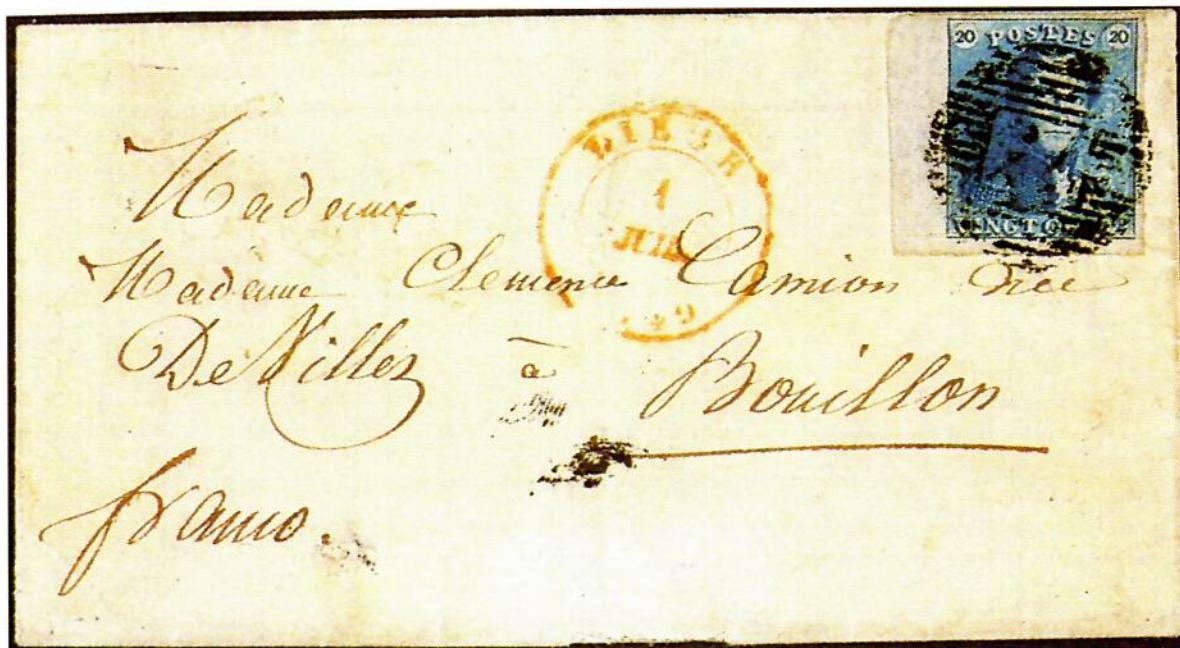 20 POSTES 20
VINGT
LIEGE
1
JUIL
49
Madame
Madame Clemence Camion née
De Villez à Bouillon
franco.